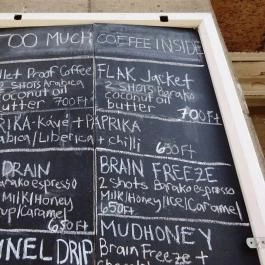 TOO MUCH COFFEE INSIDE
llet Proof Coffee
2 SHOTS Arabica
coconut oil
butter 700Ft
FLAK Jacket
2 SHOTS Barako
coconut oil
butter 700Ft
RIKA-kávé + PAPRIKA
abica/Liberica + chilli 630Ft
DRAIN
arako espresso
Milk/Honey
up/Caramel
650Ft
BRAIN FREEZE
2 shots Barako espresso
Milk/Honey/Ice/Caramel
650Ft
NNEL DRIP
MUDHONEY
Brain Freeze +